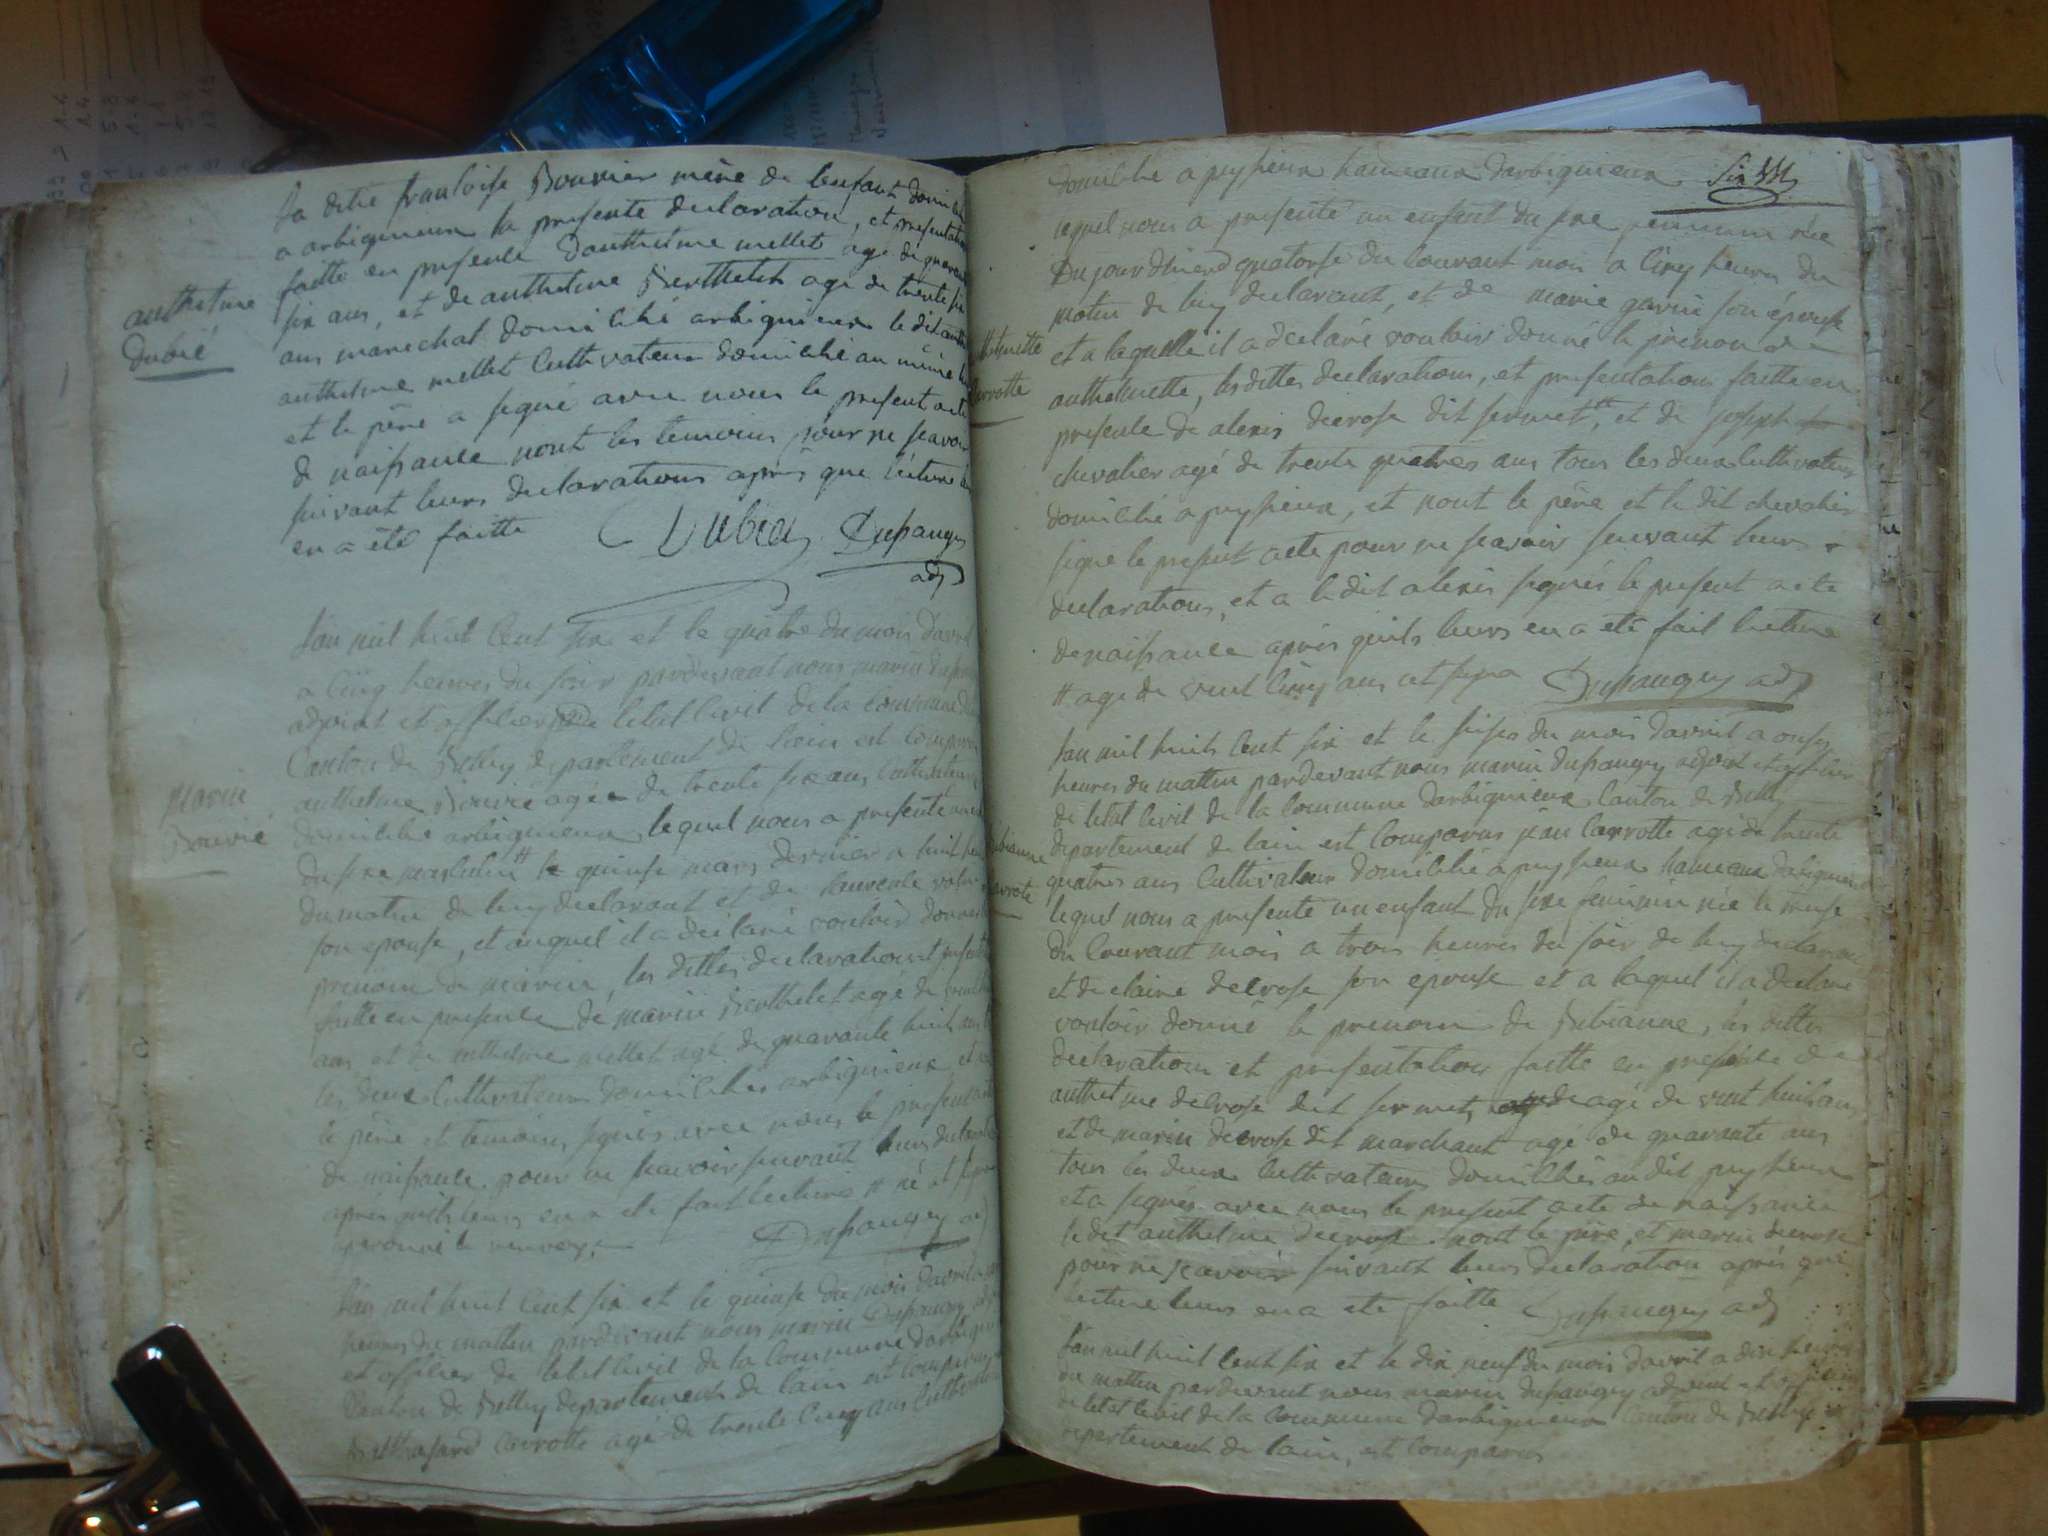 la dite franloise Bouvier mère de lenfant domicilié
a arbignieux la presente declaration, et presentation
faitte en presence danthelme mellet agé de quarante
six ans, et de anthelme Berthelet age de trente six
ans marechat domicilié arbignieux le dit
anthelme mellet Cultivateur domicilié au même
et le père a signé avec nous le present acte
de naissance nont les temoins pour ne scavoir
suivant leurs declarations après que lecture
en a été faitte
Dubié Dupaugey
adj
anthelme
Dubié
lan mil huit Cent six et le quatre du mois davril
a Cinq heures du soir pardevant nous marin
adjoint et officier de letat Civil de la Commune
Canton de Belley departement de lain est Comparu
anthelme Bouvié agée de trente six ans Cultivateur
domicilié arbignieux lequel nous a presenté
du sexe masculin # le quinse mars dernier a huit
du matin de luy declarant et de
son epouse, et auquel il a déclaré vouloir donner
prenom de marin, les dittes declarations et
faitte en presence de marin Berthelet agé de
ans et de anthelme mellet agé de quarante huit ans
les deux Cultivateurs domiciliés arbignieux et
le père et temoins signés avec nous le present
de naissance pour ne scavoir suivant leurs
après quils leurs en a été fait lecture # né et
aprouvé le renvoy Dupaugey adj
marin
Bouvié
lan mil huit Cent six et le quinse du mois davril
heures du mattin pardevant nous marin Dupaugey
et officier de letat Civil de la Commune
Canton de Belley departement de lain est Comparu
Balthasard Carrotte agé de trente Cinq ans Cultivateur
domicilié a pyssieux hameaux darbignieux six
lequel nous a presenté un enfant du sexe feminin née
Du jourdhuend quatorse du Courant mois a Cinq heures du
matin de luy declarant, et de marie garin son épouse
et a laquelle il a declaré vouloir donné le prenom de
anthelmette, les dittes declarations, et presentations faitte en
presence de alexis decrose dit sermet #, et de joseph
chevalier agé de trente quatres ans tous les deux Cultivateurs
domicilié a pyssieux, et nont le père et le dit chevalier
signé le present acte pour ne scavoir suivant leurs
declarations, et a le dit alexis signés le present acte
de naissance après quils leurs en a été fait lecture
# agé de vent Cinq ans et signa Dupaugey adj
Carrotte
lan mil huit Cent six et le seise du mois davril a onse
heures du mattin pardevant nous marin dupaugey adjoint et officier
de letat Civil de la Commune darbignieux Canton de Belley
departement de lain est Comparus jean Carrotte agé de trente
quatres ans Cultivateur domicilié a pyssieux hameaux darbignieux
lequel nous a presenté un enfant du sexe feminin née le
du Courant mois a trois heures du soir de luy declarant
et de claire decrose son epouse et a laquel il a declaré
vouloir donné le prenom de Bibianne, les dittes
declarations et presentations faitte en presence de
anthelme decrose dit sermet, agé de vent huit ans
et de marin decrose dit marchant agé de quarante ans
tous les deux Cultivateurs domiciliés au dit pyssieux
et a signés avec nous le present acte de naissance
le dit anthelme decrose nont le père, et marin decrose
pour ne scavoir suivant leurs declaration après que
lecture leurs en a été faitte Dupaugey adj
Bibianne
Carrote
lan mil huit Cent six et le dix neuf du mois davril a dix heures
du mattin pardevant nous marin dupaugey adjoint et officier
de letat Civil de la Commune darbignieux Canton de Belley
departement de lain, est Comparus